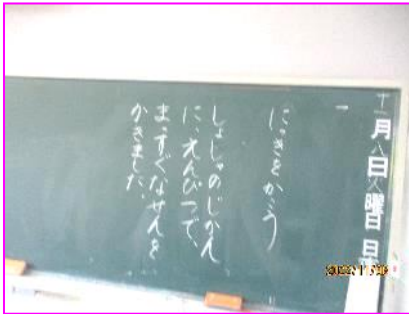 十一月八日火曜日 日
にっきをかこう
しょしゃのじかん
に、えんぴつで、
まっすぐなせんを
かきました。